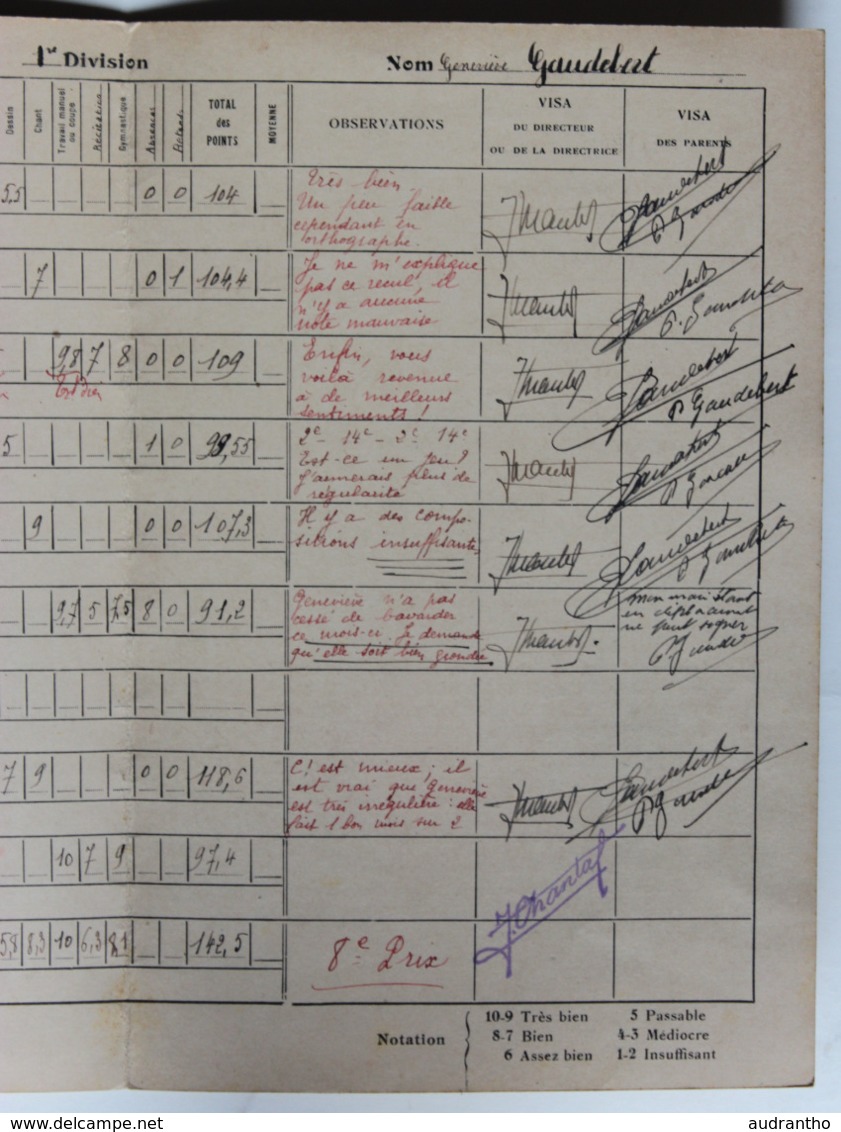 1re Division Nom Geneviève Gaudebert
Dessin Chant Travail manuel ou coupe Récitation Gymnastique Absences Retards TOTAL des POINTS MOYENNE OBSERVATIONS VISA DU DIRECTEUR OU DE LA DIRECTRICE VISA DES PARENTS
5,5 0 0 104
Très bien
Un peu faible
cependant en
orthographe.
Gaudebert
7 0 1 104,4
Je ne m'explique
pas ce recul, il
n'y a aucune
note mauvaise
Gaudebert
9,8 7 8 0 0 109
Très bien
Enfin, vous
voilà revenue
à de meilleurs
sentiments !
Gaudebert
P Gaudebert
5 1 0 99,55
2e - 14e - 2e 14e
Est-ce un jeu ?
J'aimerais plus de
régularité
Gaudebert
9 0 0 107,3
Il y a des compo-
sitions insuffisantes
Gaudebert
9,7 5 7,5 8 0 91,2
Geneviève n'a pas
cessé de bavarder
ce mois-ci. Je demande
qu'elle soit bien grondée
mon mari étant
en déplacement
ne peut signer
7 9 0 0 118,6
C'est mieux ; il
est vrai que Geneviève
est très irrégulière : elle
fait 1 bon mois sur 2
Gaudebert
10 7 9 97,4
5,8 8,3 10 6,3 8,1 142,5
8e Prix
Notation
10-9 Très bien 5 Passable
8-7 Bien 4-3 Médiocre
6 Assez bien 1-2 Insuffisant
delcampe.net
audrantho